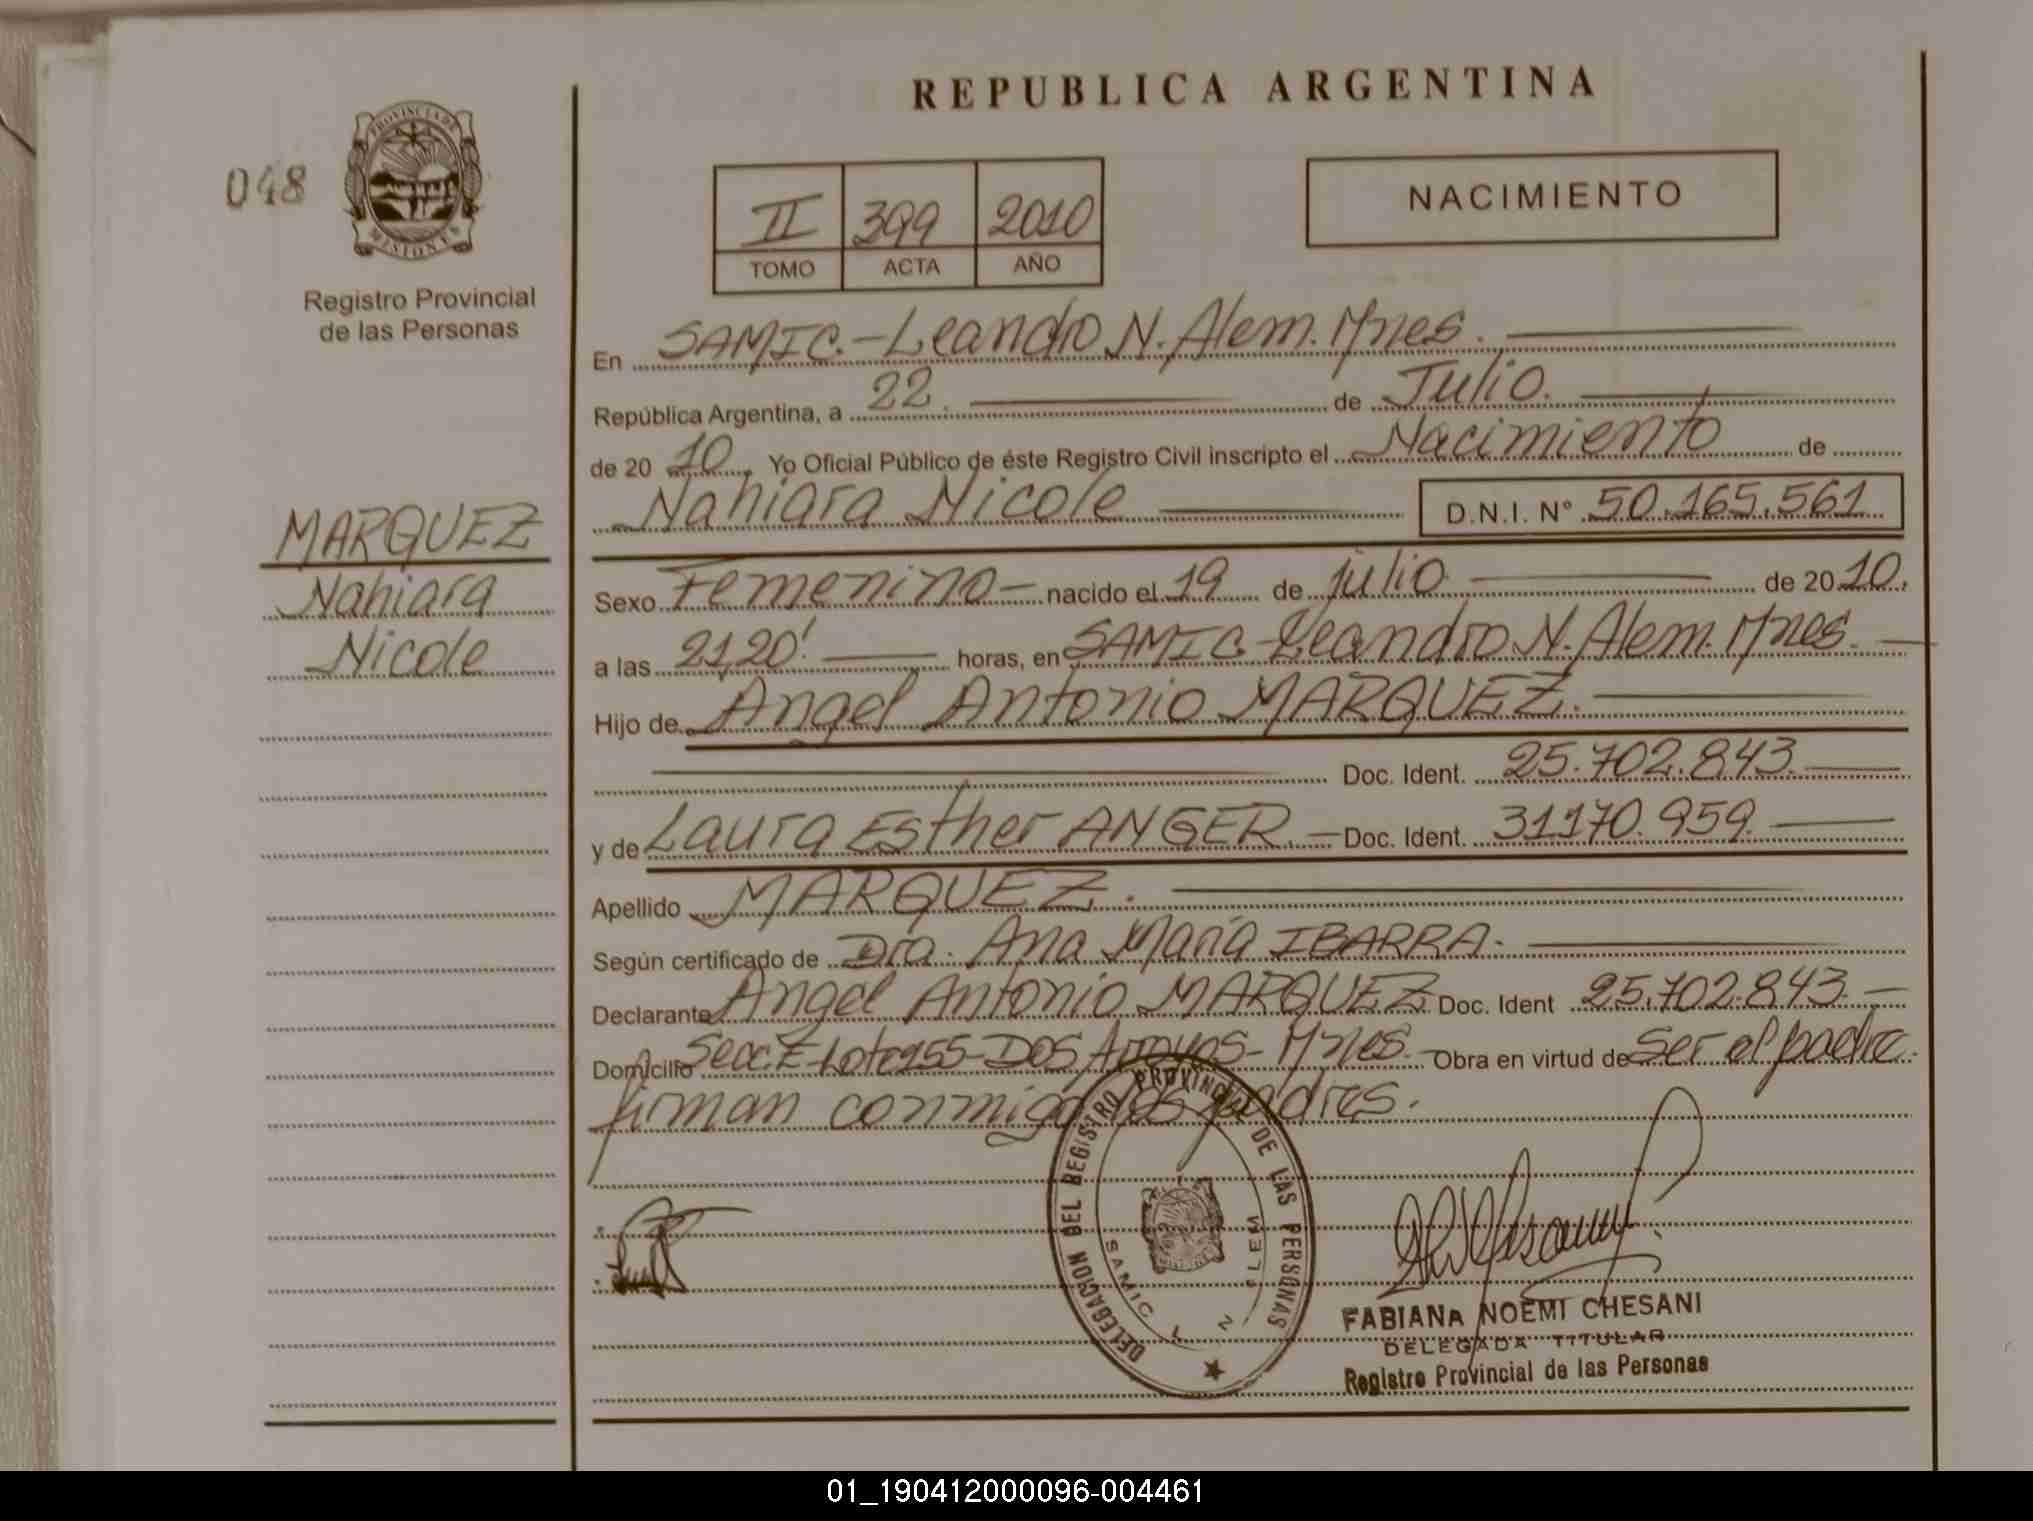 REPUBLICA ARGENTINA
048
PROVINCIA DE
MISIONES
Registro Provincial
de las Personas
II 399 2010
TOMO ACTA AÑO
NACIMIENTO
En SAMIC.-Leandro N. Alem. Mnes.
República Argentina, a 22. de Julio.
de 20 10. Yo Oficial Público de éste Registro Civil inscripto el Nacimiento de
Nahiara Nicole D.N.I. N° 50.165.561
MARQUEZ
Nahiara
Nicole
Sexo Femenino- nacido el 19 de julio de 20 10.
a las 21,20' horas, en SAMIC-Leandro N. Alem. Mnes.
Hijo de Angel Antonio MARQUEZ.
Doc. Ident. 25.702.843.
y de Laura Esther ANGER.- Doc. Ident. 31170.959.
Apellido MARQUEZ.
Según certificado de Dra. Ana María IBARRA.
Declarante Angel Antonio MARQUEZ Doc. Ident 25.702.843-
Domicilio Secc. E-Lote155-DOS Arroyos-Mnes.- Obra en virtud de Ser el padre.
firman conmigo los padres.
DELEGACION DEL REGISTRO PROVINCIAL DE LAS PERSONAS
SAMIC L N ALEM
FABIANA NOEMI CHESANI
DELEGADA TITULAR
Registro Provincial de las Personas
01_190412000096-004461